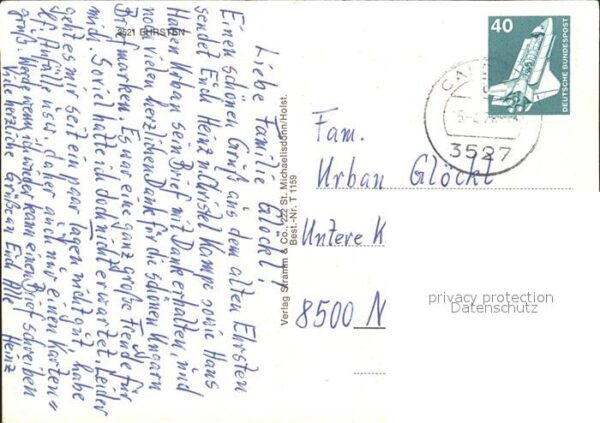 3521 EHRSTEN
Liebe Familie Glöckl!
Einen schönen Gruß aus dem alten Ehrsten
sendet Euch Heinz m. Christel Kampe sowie Hans
Haben Urban sein Brief mit Dank erhalten, und
noch vielen herzlichen Dank für die schönen Ungarn
Briefmarken. Es war eine ganz große Freude für
mich. Soviel hatte ich doch nicht erwartet. Leider
geht es mir seit ein paar Tagen nicht gut, habe
Anfälle usw. daher auch nur einen Karten=
gruß. Werde wenn ich wieder kann einen Brief schreiben
Viele herzliche Grüße an Euch Alle
Heinz
Verlag Stramm & Co., 222 St. Michaelisdonn/Holst.
Best.-Nr. T 1159
40
DEUTSCHE BUNDESPOST
3527
Fam.
Urban Glöckl
Untere K
8500 N
privacy protection
Datenschutz